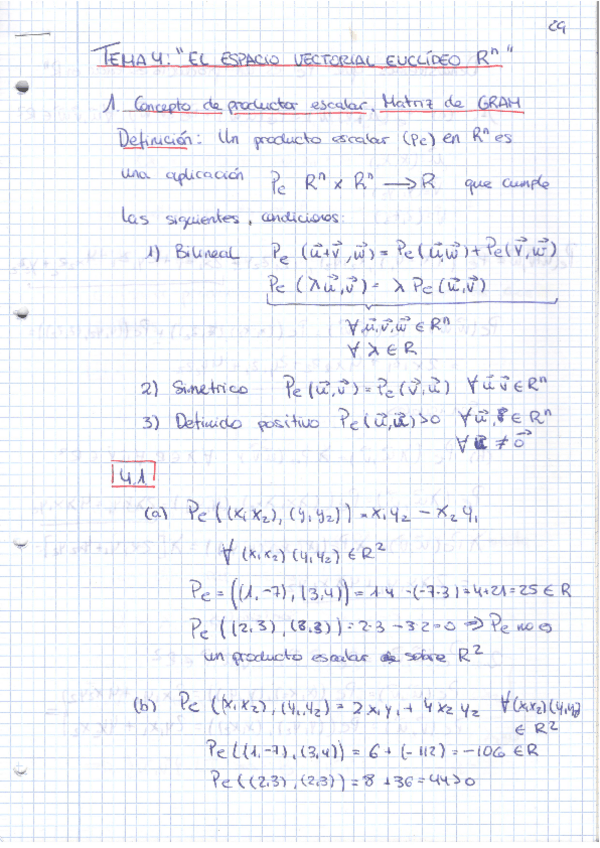 29
TEMA 4: "EL ESPACIO VECTORIAL EUCLÍDEO Rⁿ"
1. Concepto de productor escalar. Matriz de GRAM
Definición: Un producto escalar (Pe) en Rⁿ es
una aplicación Pe Rⁿ x Rⁿ → R que cumple
las siguientes, condiciones:
1) Bilineal Pe (u⃗+v⃗, w⃗) = Pe(u⃗,w⃗) + Pe(v⃗,w⃗)
Pe (λu⃗,v⃗) = λ Pe (u⃗,v⃗)
∀ u⃗,v⃗,w⃗ ∈ Rⁿ
∀ λ ∈ R
2) Simetrico Pe (u⃗,v⃗) = Pe (v⃗,u⃗) ∀ u⃗ v⃗ ∈ Rⁿ
3) Definido positivo Pe (u⃗,u⃗) >0 ∀ u⃗, ∈ Rⁿ
∀ ≠ 0⃗
4.1
(a) Pe ((x₁x₂), (y₁y₂)) = x₁y₂ − x₂y₁
∀ (x₁x₂) (y₁y₂) ∈ R²
Pe = ((1,-7), (3,4)) = 1·4 -(-7·3) = 4+21 = 25 ∈ R
Pe ((2,3), (3)) = 2·3 − 3·2 = 0 ⇒ Pe no es
un producto escalar sobre R²
(b) Pe (x₁x₂), (y₁,y₂) = 2x₁y₁ + 4x₂y₂ ∀(x₁x₂)(y₁y₂)
∈ R²
Pe((1,-7), (3,4)) = 6 + (-112) = -106 ∈ R
Pe((2,3), (2,3)) = 8 + 36 = 44 > 0